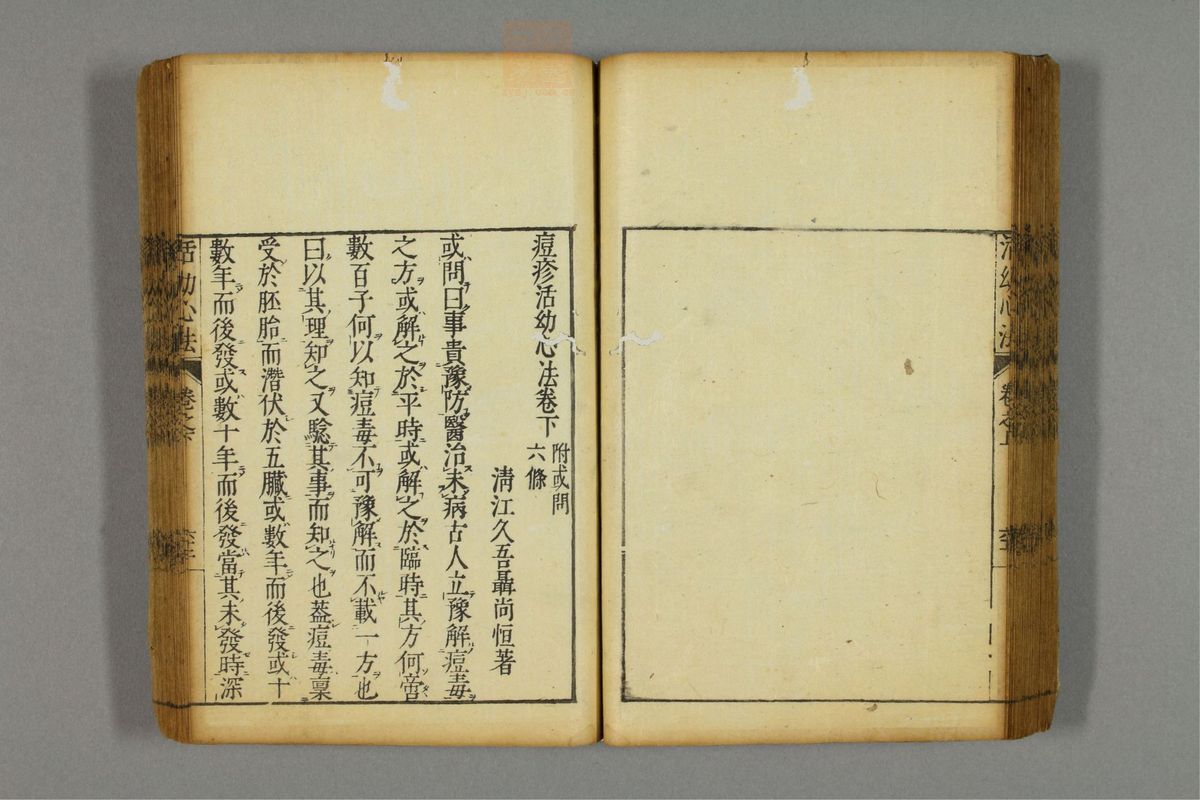 活幼心法 卷之上
痘疹活幼心法卷下 附或問六條
清江久吾聶尚恒著
或問曰事貴豫防醫治未病古人立豫解痘毒
之方或解之於平時或解之於臨時其方何啻
數百子何以知痘毒不可豫解而不載一方也
曰以其理知之又驗其事而知之也葢痘毒稟
受於胚胎而潛伏於五臟或數年而後發或十
數年而後發或數十年而後發當其未發時深
活幼心法 卷之下